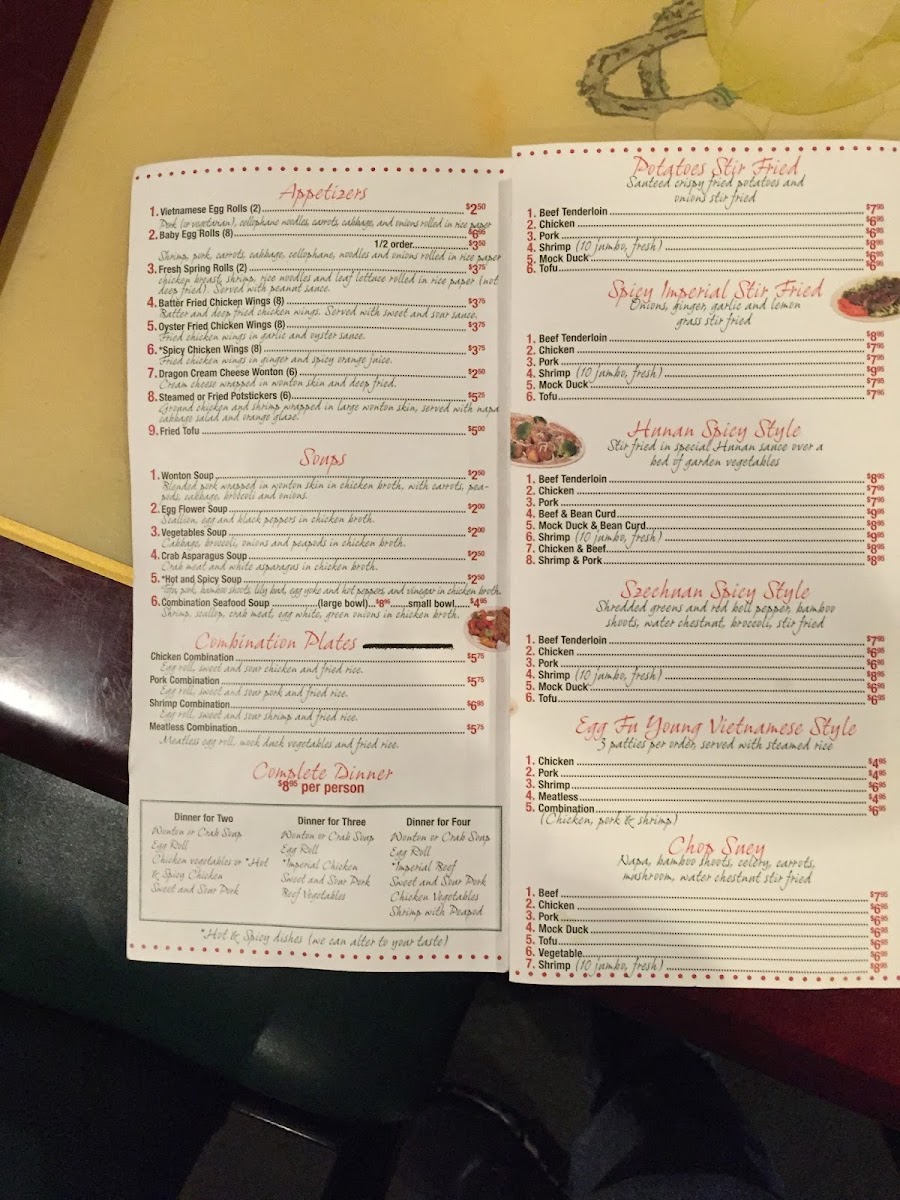 Appetizers
1. Vietnamese Egg Rolls (2) $2.50
Pork (or vegetarian), cellophane noodles, carrots, cabbage, and onions rolled in rice paper
2. Baby Egg Rolls (8) $6.95
1/2 order $3.50
Shrimp, pork, carrots, cabbage, cellophane, noodles and onions rolled in rice paper
3. Fresh Spring Rolls (2) $3.75
chicken breast, shrimp, rice noodles and leaf lettuce rolled in rice paper (not
deep fried). Served with peanut sauce.
4. Batter Fried Chicken Wings (8) $3.75
Batter and deep fried chicken wings. Served with sweet and sour sauce.
5. Oyster Fried Chicken Wings (8) $3.75
Fried chicken wings in garlic and oyster sauce.
6. *Spicy Chicken Wings (8) $3.75
Fried chicken wings in ginger and spicy orange juice.
7. Dragon Cream Cheese Wonton (6) $2.50
Cream cheese wrapped in wonton skin and deep fried.
8. Steamed or Fried Potstickers (6) $5.25
Ground chicken and shrimp wrapped in large wonton skin, served with napa
cabbage salad and orange glaze.
9. Fried Tofu $5.00
Soups
1. Wonton Soup $2.50
Blended pork wrapped in wonton skin in chicken broth, with carrots, pea-
pods, cabbage, broccoli and onions.
2. Egg Flower Soup $2.00
Scallion, egg and black peppers in chicken broth.
3. Vegetables Soup $2.00
Cabbage, broccoli, onions and peapods in chicken broth.
4. Crab Asparagus Soup $2.50
Crab meat and white asparagus in chicken broth.
5. *Hot and Spicy Soup $2.50
Tofu, pork, bamboo shoots, lily bud, egg yoke and hot peppers and vinegar in chicken broth.
6. Combination Seafood Soup (large bowl) $8.95 small bowl $4.95
Shrimp, scallop, crab meat, egg white, green onions in chicken broth.
Combination Plates
Chicken Combination $5.75
Egg roll, sweet and sour chicken and fried rice.
Pork Combination $5.75
Egg roll, sweet and sour pork and fried rice.
Shrimp Combination $6.95
Egg roll, sweet and sour shrimp and fried rice.
Meatless Combination $5.75
Meatless egg roll, mock duck vegetables and fried rice.
Complete Dinner
$8.95 per person
Dinner for Two
Wonton or Crab Soup
Egg Roll
Chicken vegetables or *Hot
& Spicy Chicken
Sweet and Sour Pork
Dinner for Three
Wonton or Crab Soup
Egg Roll
*Imperial Chicken
Sweet and Sour Pork
Beef Vegetables
Dinner for Four
Wonton or Crab Soup
Egg Roll
*Imperial Beef
Sweet and Sour Pork
Chicken Vegetables
Shrimp with Peapod
*Hot & Spicy dishes (we can alter to your taste)
Potatoes Stir Fried
Sauteed crispy fried potatoes and
onions stir fried
1. Beef Tenderloin $7.95
2. Chicken $6.95
3. Pork $6.95
4. Shrimp (10 jumbo, fresh) $8.95
5. Mock Duck $6.95
6. Tofu $6.95
Spicy Imperial Stir Fried
Onions, ginger, garlic and lemon
grass stir fried
1. Beef Tenderloin $8.95
2. Chicken $7.95
3. Pork $7.95
4. Shrimp (10 jumbo, fresh) $9.95
5. Mock Duck $7.95
6. Tofu $7.95
Hunan Spicy Style
Stir fried in special Hunan sauce over a
bed of garden vegetables
1. Beef Tenderloin $8.95
2. Chicken $7.95
3. Pork $7.95
4. Beef & Bean Curd $9.95
5. Mock Duck & Bean Curd $8.95
6. Shrimp (10 jumbo, fresh) $9.95
7. Chicken & Beef $8.95
8. Shrimp & Pork $8.95
Szechuan Spicy Style
Shredded greens and red bell pepper, bamboo
shoots, water chestnut, broccoli, stir fried
1. Beef Tenderloin $7.95
2. Chicken $6.95
3. Pork $6.95
4. Shrimp (10 jumbo, fresh) $8.95
5. Mock Duck $6.95
6. Tofu $6.95
Egg Fu Young Vietnamese Style
3 patties per order, served with steamed rice
1. Chicken $4.95
2. Pork $4.95
3. Shrimp $6.95
4. Meatless $4.95
5. Combination $6.95
(Chicken, pork & shrimp)
Chop Suey
Napa, bamboo shoots, celery, carrots,
mushroom, water chestnut stir fried
1. Beef $7.95
2. Chicken $6.95
3. Pork $6.95
4. Mock Duck $6.95
5. Tofu $6.95
6. Vegetable $6.95
7. Shrimp (10 jumbo, fresh) $8.95